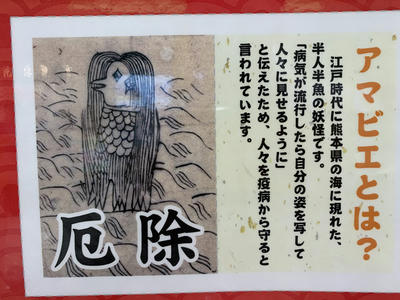 アマビエとは?
江戸時代に熊本県の海に現れた、
半人半魚の妖怪です。
「病気が流行したら自分の姿を写して
人々に見せるように」
と伝えたため、人々を疫病から守ると
言われています。
厄除